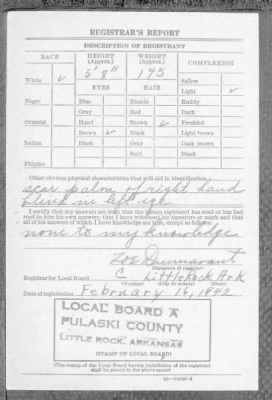 REGISTRAR'S REPORT
DESCRIPTION OF REGISTRANT
RACE HEIGHT (Approx.) WEIGHT (Approx.) COMPLEXION
5' 8" 175
White ✓ Sallow
EYES HAIR Light ✓
Negro Blue Blonde Ruddy
Gray Red Dark
Oriental Hazel Brown ✓ Freckled
Brown ✓ Black Light brown
Indian Black Gray Dark brown
Bald Black
Filipino
Other obvious physical characteristics that will aid in identification
scar palm of right hand
blind in left eye
I certify that my answers are true; that the person registered has read or has had
read to him his own answers; that I have witnessed his signature or mark and that
all of his answers of which I have knowledge are true, except as follows:
none to my knowledge
Zoe Dunnavant
(Signature of registrar)
Registrar for Local Board C Little Rock Ark
(Number) (City or county) (State)
Date of registration February 16, 1942
LOCAL BOARD A
PULASKI COUNTY
LITTLE ROCK, ARKANSAS
(STAMP OF LOCAL BOARD)
(The stamp of the Local Board having jurisdiction of the registrant
shall be placed in the above space)